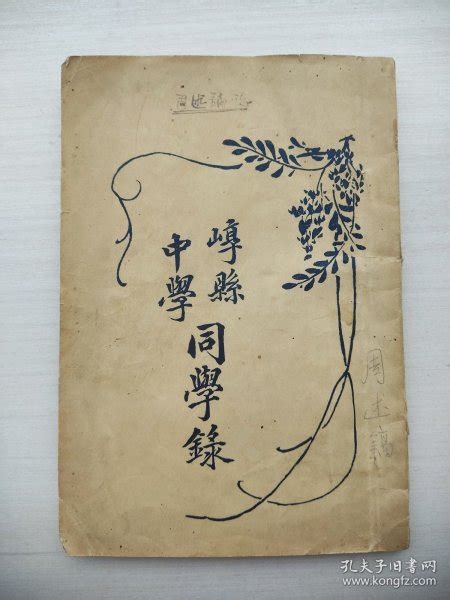 崞縣
中學
同學錄
周述
孔夫子旧书网
www.kongfz.com